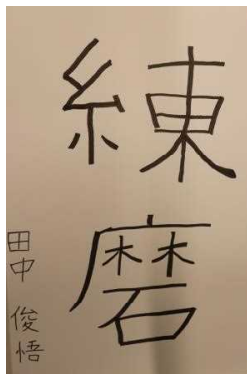 練磨
田中 俊悟